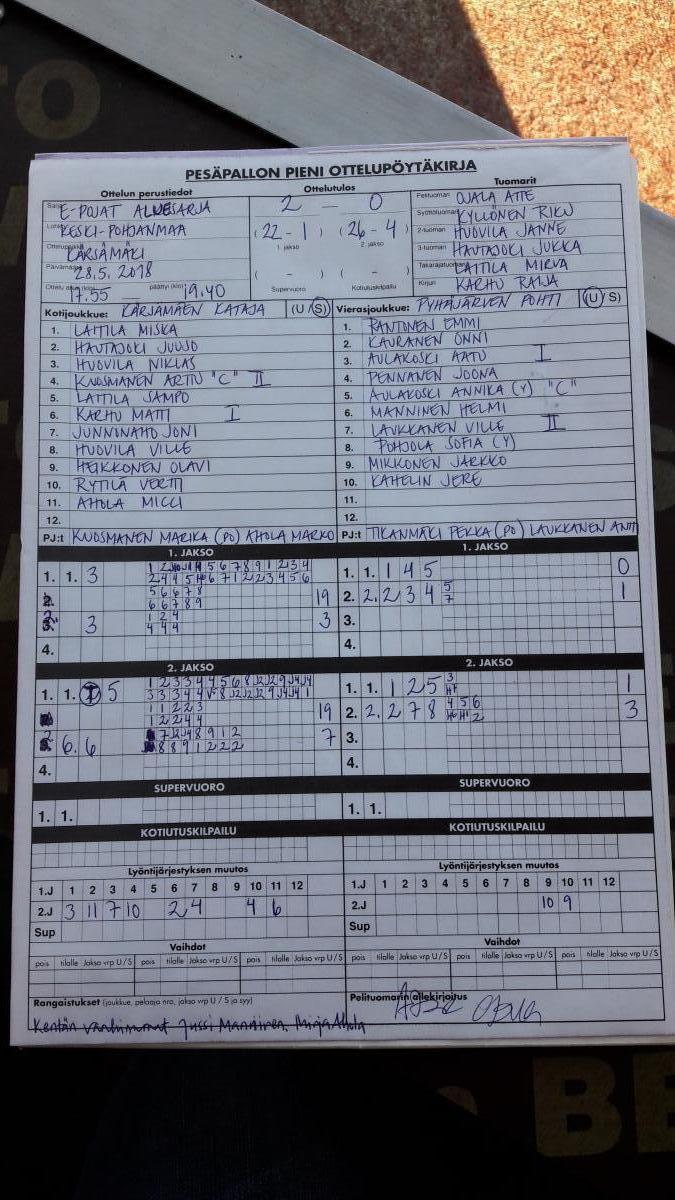 PESÄPALLON PIENI OTTELUPÖYTÄKIRJA
Ottelun perustiedot
Ottelutulos
Tuomarit
E-POJAT ALUESARJA
KESKI-POHJANMAA
KÄRSÄMÄKI
28.5.2018
17.55 19.40
2 - 0
(22 - 1) (26 - 4)
1. jakso 2. jakso
( - ) ( - )
Supervuoro Kotiutuskilpailu
Pelituomari OJALA ATTE
Syöttötuomari KYLLÖNEN RIKU
2-tuomari HUOVILA JANNE
3-tuomari HAUTAJOKI JUKKA
Takarajatuomari LAITILA MIRVA
Kirjuri KARHU RAIJA
Kotijoukkue: KÄRSÄMÄEN KATAJA (U / S)
1. LAITILA MISKA
2. HAUTAJOKI JUUSO
3. HUOVILA NIKLAS
4. KUOSMANEN ARTTU "C" II
5. LAITILA SAMPO
6. KARHU MATTI I
7. JUNNINAHO JONI
8. HUOVILA VILLE
9. HEIKKONEN OLAVI
10. RYTILÄ VERTTI
11. AHOLA MICCI
12.
PJ:t KUOSMANEN MARIKA (PO) AHOLA MARKO
Vierasjoukkue: PYHÄJÄRVEN POHTI (U / S)
1. RANTONEN EMMI
2. KAURANEN ONNI
3. AULAKOSKI AATU I
4. PENNANEN JOONA
5. AULAKOSKI ANNIKA (Y) "C"
6. MANNINEN HELMI
7. LAUKKANEN VILLE II
8. POHJOLA SOFIA (Y)
9. MIKKONEN JARKKO
10. KAHELIN JERE
11.
12.
PJ:t TIKANMÄKI PEKKA (PO) LAUKKANEN ANTTI
1. JAKSO
1. 1. 3
5 6 6 7 8
6 6 7 8 9 19
1 2 4
3 4 4 4 3
4.
1. JAKSO
1. 1. 1 4 5 0
2. 2. 2 3 4 5 7 1
3.
4.
2. JAKSO
1. 1. 5
1 1 2 2 3
1 2 2 4 4 19
6. 6 7
4.
2. JAKSO
1. 1. 1 2 5 3 1
2. 2. 2 7 8 4 5 6 3
3.
4.
SUPERVUORO
1. 1.
SUPERVUORO
1. 1.
KOTIUTUSKILPAILU
KOTIUTUSKILPAILU
Lyöntijärjestyksen muutos
1.J 1 2 3 4 5 6 7 8 9 10 11 12
2.J 3 11 7 10 2 4 4 6
Sup
Lyöntijärjestyksen muutos
1.J 1 2 3 4 5 6 7 8 9 10 11 12
2.J 10 9
Sup
Vaihdot
pois tilalle Jakso vrp U / S pois tilalle Jakso vrp U / S pois tilalle Jakso vrp U / S
Vaihdot
pois tilalle Jakso vrp U / S pois tilalle Jakso vrp U / S pois tilalle Jakso vrp U / S
Rangaistukset (joukkue, pelaaja nro, jakso vrp U / S ja syy)
Pelituomarin allekirjoitus
Kentän vanhimmat Jussi Manninen, Mirja Ahola